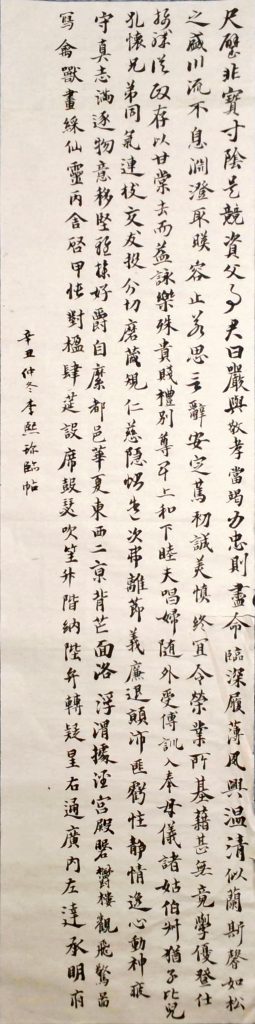 尺璧非寶寸陰是競資父事君曰嚴與敬孝當竭力忠則盡命臨深履薄夙興温凊似蘭斯馨如松
之盛川流不息淵澄取映容止若思言辭安定篤初誠美慎終宜令榮業所基藉甚無竟學優登仕
攝職從政存以甘棠去而益詠樂殊貴賤禮別尊卑上和下睦夫唱婦隨外受傅訓入奉母儀諸姑伯叔猶子比兒
孔懷兄弟同氣連枝交友投分切磨箴規仁慈隱惻造次弗離節義廉退顛沛匪虧性靜情逸心動神疲
守真志滿逐物意移堅雅操好爵自縻都邑華夏東西二京背芒面洛浮渭據涇宮殿磐鬱樓觀飛驚圖
寫禽獸畫綵仙靈丙舍啓甲帳對楹肆筵設席鼓瑟吹笙升階納陛弁轉疑星右通廣內左達承明
辛丑仲冬李熙臨帖